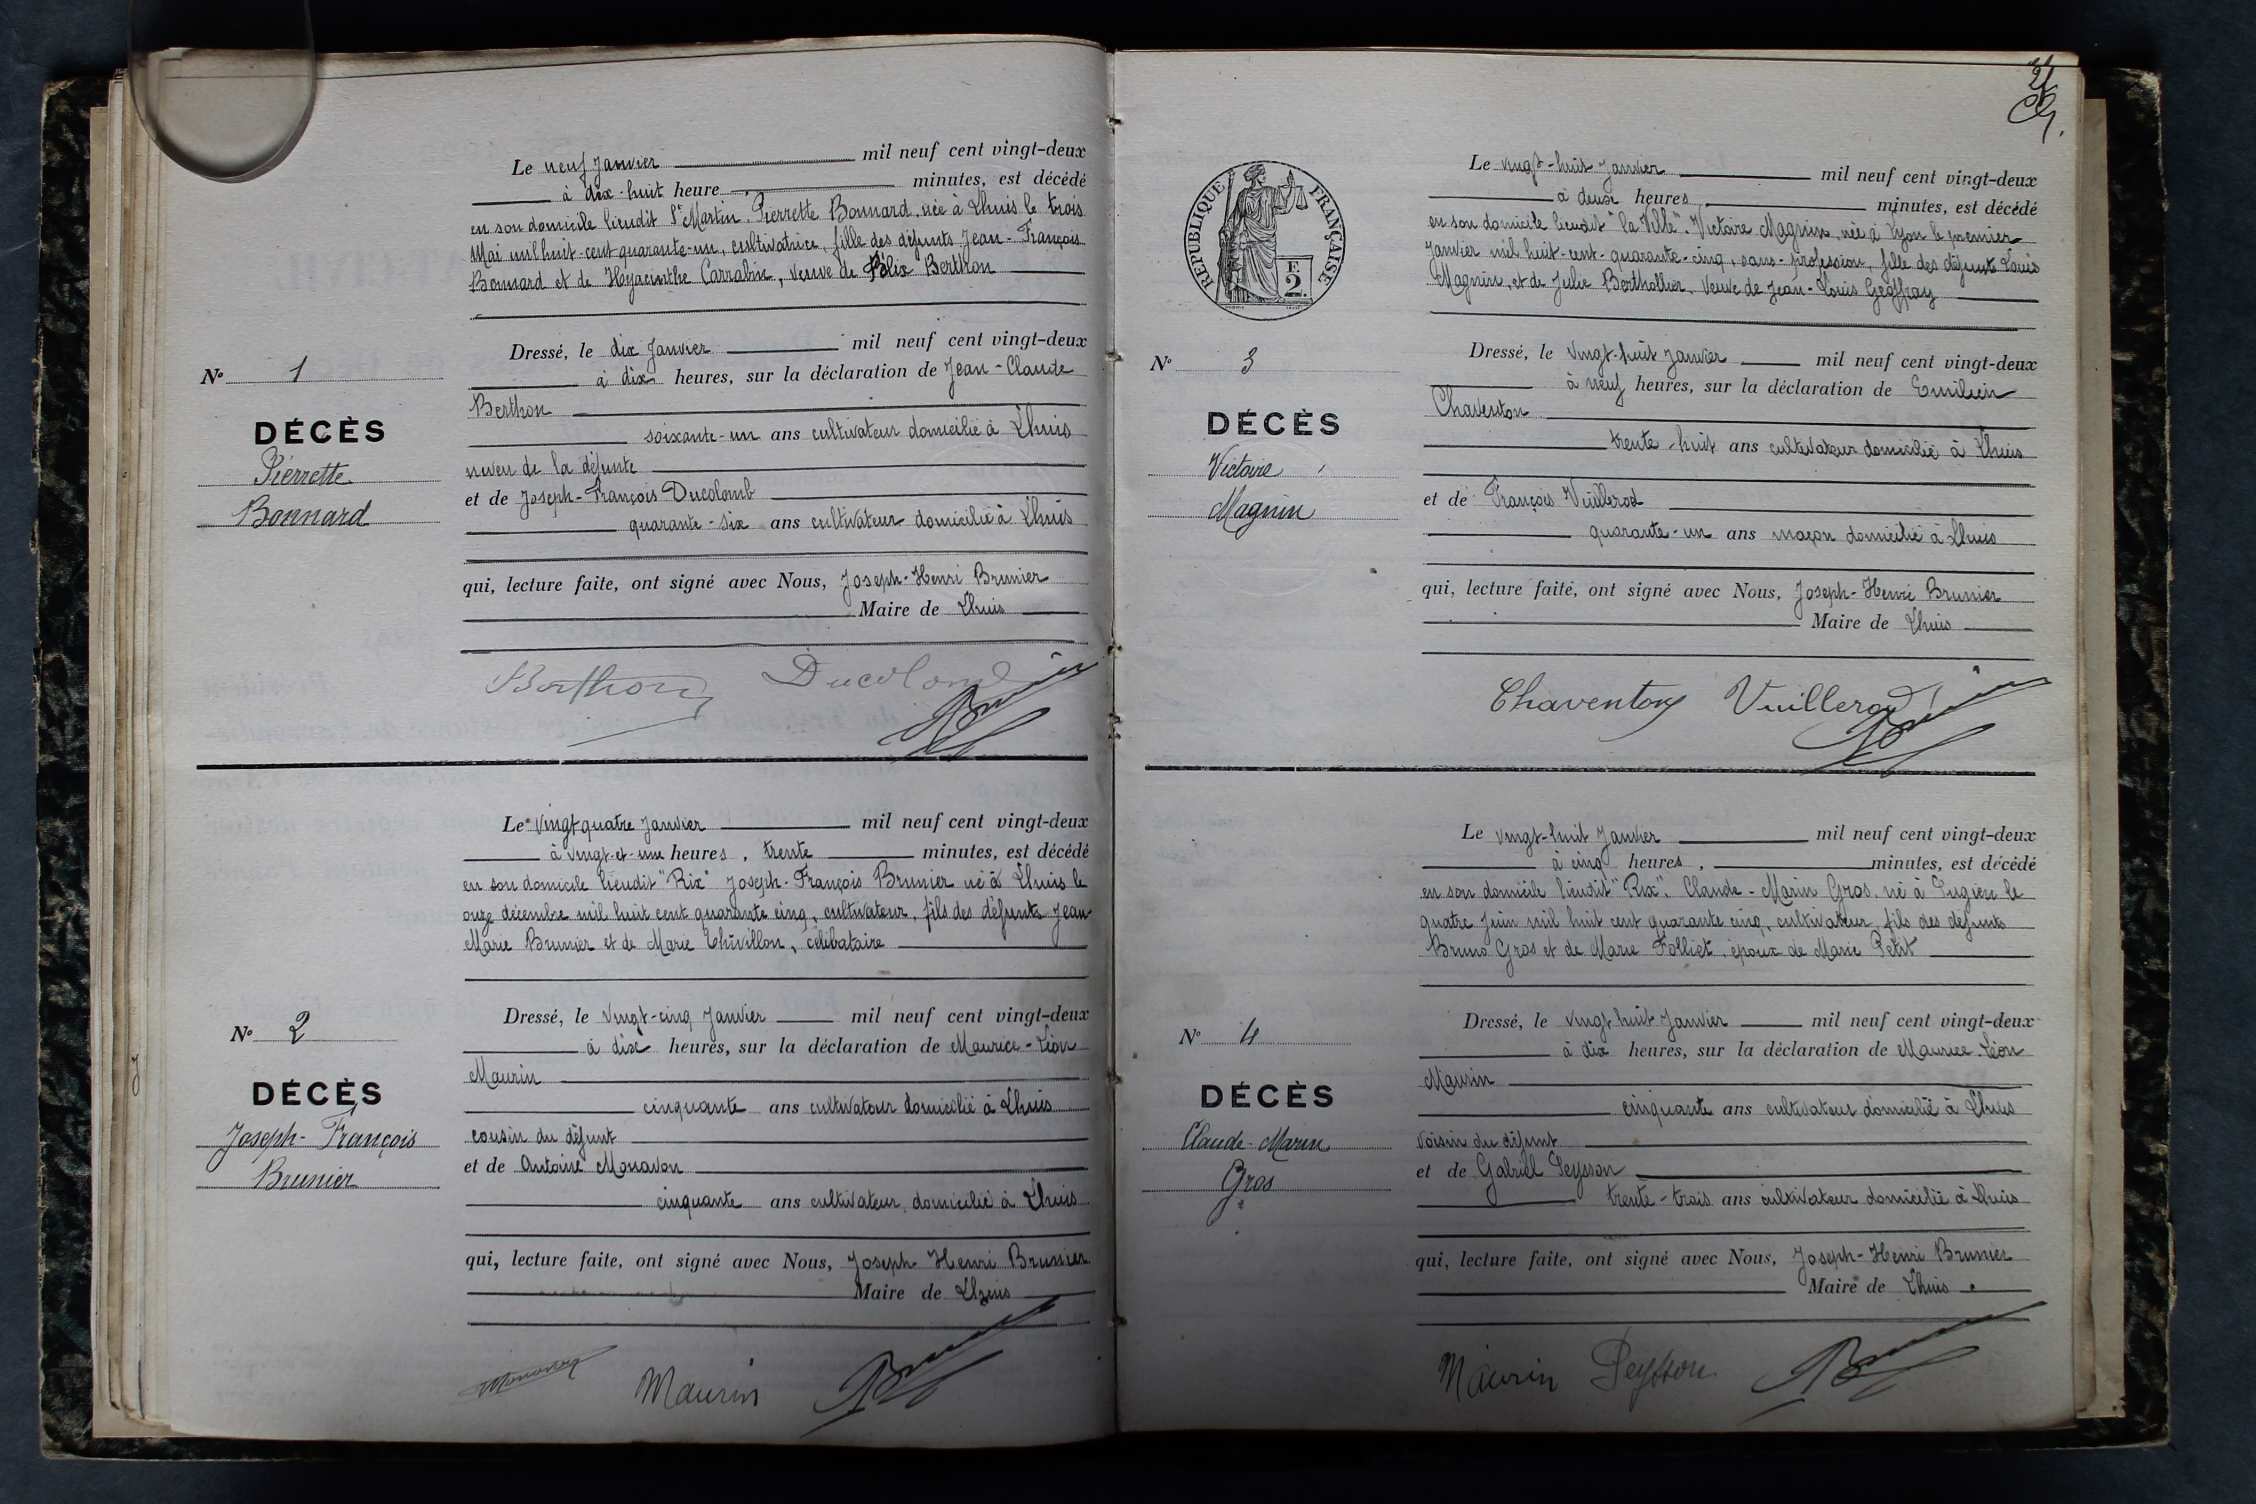 Le neuf Janvier mil neuf cent vingt-deux
à dix-huit heure minutes, est décédé
en son domicile lieudit St Martin. Pierrette Bonnard, née à Lhuis le trois
Mai mil huit-cent quarante-un, cultivatrice, fille des défunts Jean-François
Bonnard et de Hyacinthe Carrabin, veuve de Félix Berthon
Dressé, le dix Janvier mil neuf cent vingt-deux
à dix heures, sur la déclaration de Jean-Claude
Berthon
soixante-un ans cultivateur domicilié à Lhuis
neveu de la défunte
et de Joseph-François Ducolomb
quarante-six ans cultivateur domicilié à Lhuis
qui, lecture faite, ont signé avec Nous, Joseph-Henri Brunier
Maire de Lhuis
No 1
DÉCÈS
Pierrette
Bonnard
Berthon Ducolomb
Le vingt quatre Janvier mil neuf cent vingt-deux
à vingt-et-une heures, trente minutes, est décédé
en son domicile lieudit "Rix" Joseph-François Brunier né à Lhuis le
onze décembre mil huit cent quarante cinq, cultivateur, fils des défunts Jean
Marie Brunier et de Marie Thivillon, célibataire
Dressé, le vingt-cinq Janvier mil neuf cent vingt-deux
à dix heures, sur la déclaration de Maurice-Léon
Maurin
cinquante ans cultivateur domicilié à Lhuis
cousin du défunt
et de Antoine Monavon
cinquante ans cultivateur, domicilié à Lhuis
qui, lecture faite, ont signé avec Nous, Joseph Henri Brunier
Maire de Lhuis
No 2
DÉCÈS
Joseph-François
Brunier
Monavon Maurin
RÉPUBLIQUE FRANÇAISE
F.
2.
Le vingt-huit Janvier mil neuf cent vingt-deux
à deux heures, minutes, est décédé
en son domicile lieudit "la Ville". Victoire Magnin, née à Lyon le premier
Janvier mil huit-cent-quarante-cinq, sans-profession, fille des défunts Louis
Magnin, et de Julie Berthollier. Veuve de Jean-Louis Geoffray
Dressé, le vingt-huit Janvier mil neuf cent vingt-deux
à neuf heures, sur la déclaration de Emilien
Chaventon
trente-huit ans cultivateur domicilié à Lhuis
et de François Vuillerod
quarante-un ans maçon domicilié à Lhuis
qui, lecture faite, ont signé avec Nous, Joseph-Henri Brunier
Maire de Lhuis
No 3
DÉCÈS
Victoire
Magnin
Chaventon Vuillerod
Le vingt-huit Janvier mil neuf cent vingt-deux
à cinq heures, minutes, est décédé
en son domicile lieudit "Rix". Claude-Marin Gros, né à Eugieu le
quatre Juin mil huit cent quarante cinq, cultivateur, fils des défunts
Bruno Gros et de Marie Folliet, époux de Marie Petit
Dressé, le vingt huit Janvier mil neuf cent vingt-deux
à dix heures, sur la déclaration de Maurice-Léon
Maurin
cinquante ans cultivateur domicilié à Lhuis
voisin du défunt
et de Gabriel Peysson
trente-trois ans cultivateur domicilié à Lhuis
qui, lecture faite, ont signé avec Nous, Joseph-Henri Brunier
Maire de Lhuis
No 4
DÉCÈS
Claude-Marin
Gros
Maurin Peysson